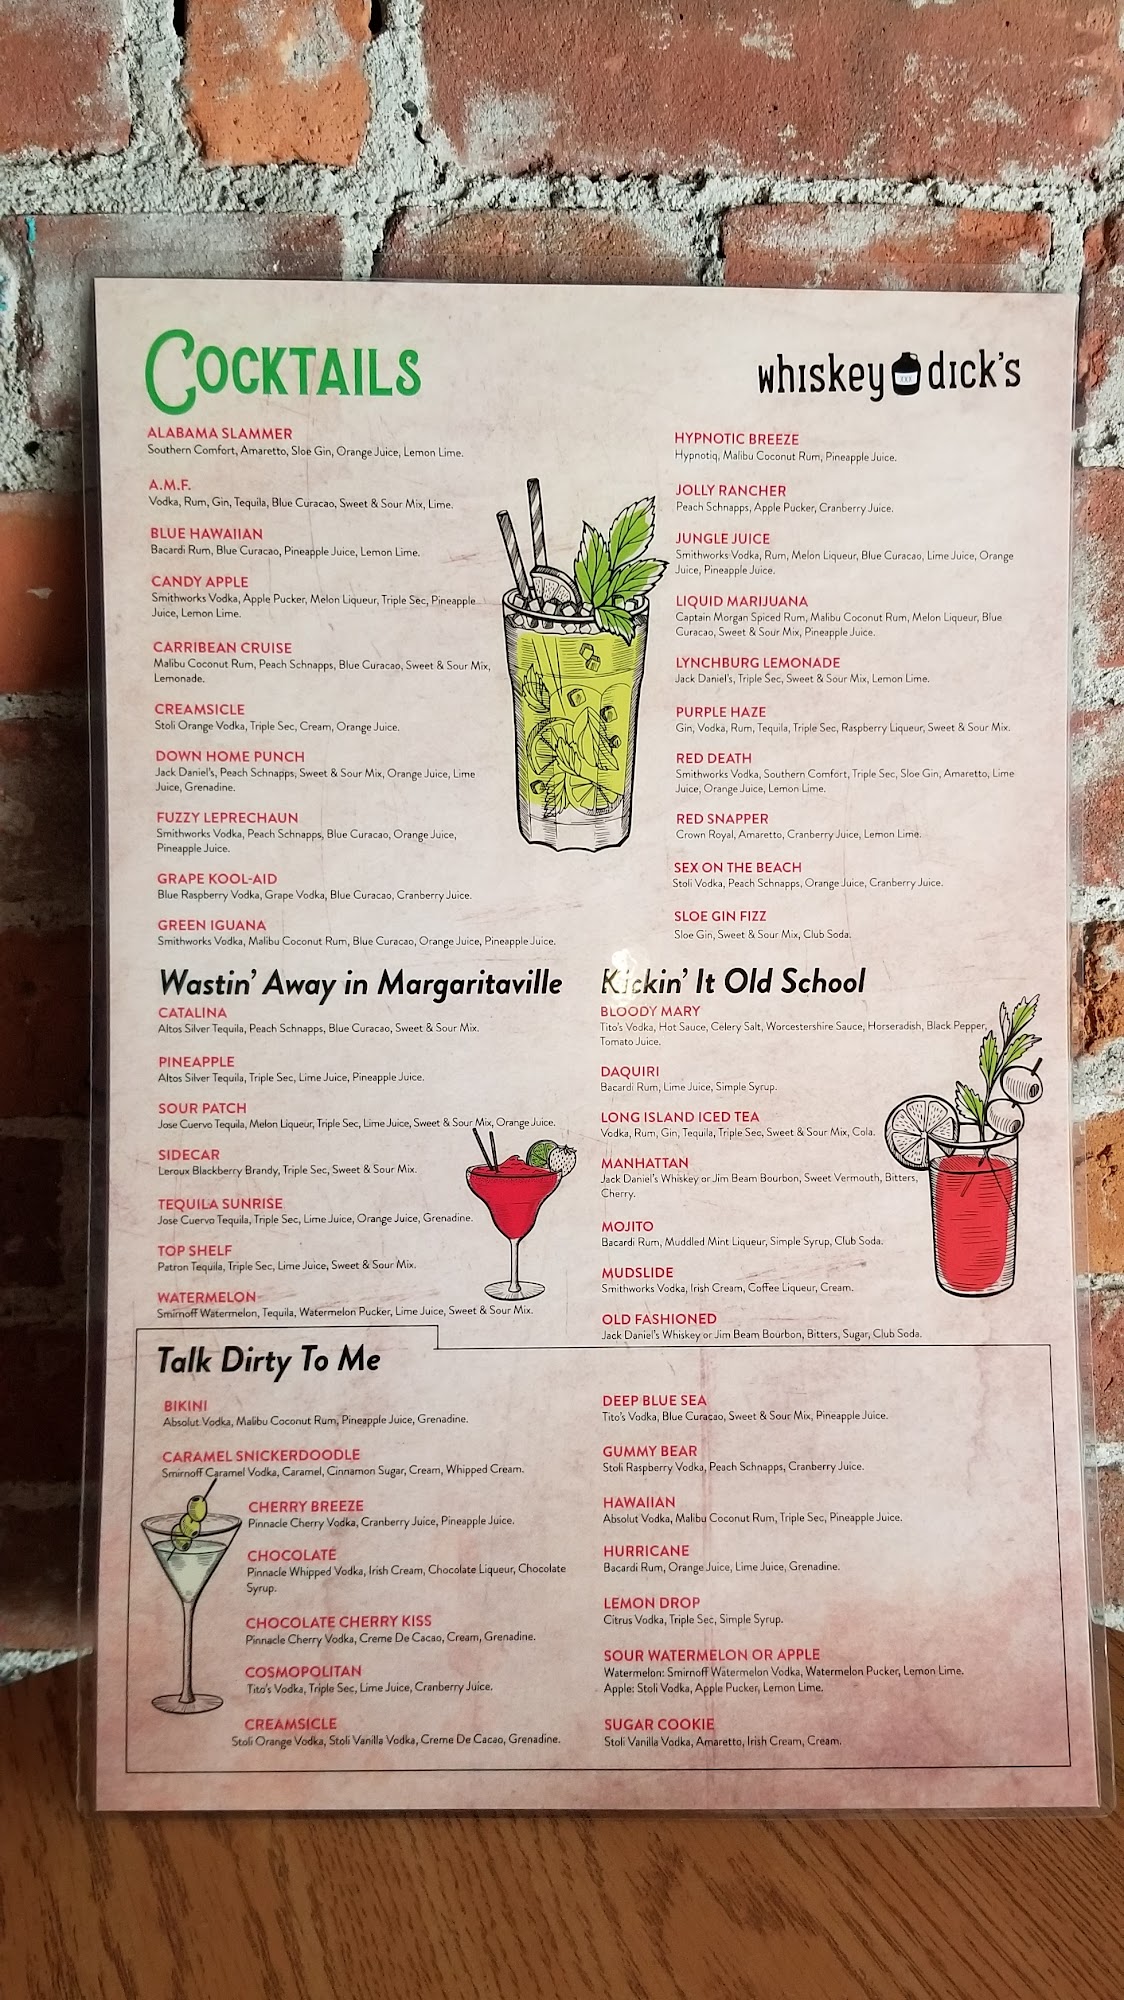 COCKTAILS
whiskey dick's
XXX
ALABAMA SLAMMER
Southern Comfort, Amaretto, Sloe Gin, Orange Juice, Lemon Lime.
A.M.F.
Vodka, Rum, Gin, Tequila, Blue Curacao, Sweet & Sour Mix, Lime.
BLUE HAWAIIAN
Bacardi Rum, Blue Curacao, Pineapple Juice, Lemon Lime.
CANDY APPLE
Smithworks Vodka, Apple Pucker, Melon Liqueur, Triple Sec, Pineapple
Juice, Lemon Lime.
CARRIBEAN CRUISE
Malibu Coconut Rum, Peach Schnapps, Blue Curacao, Sweet & Sour Mix,
Lemonade.
CREAMSICLE
Stoli Orange Vodka, Triple Sec, Cream, Orange Juice.
DOWN HOME PUNCH
Jack Daniel's, Peach Schnapps, Sweet & Sour Mix, Orange Juice, Lime
Juice, Grenadine.
FUZZY LEPRECHAUN
Smithworks Vodka, Peach Schnapps, Blue Curacao, Orange Juice,
Pineapple Juice.
GRAPE KOOL-AID
Blue Raspberry Vodka, Grape Vodka, Blue Curacao, Cranberry Juice.
GREEN IGUANA
Smithworks Vodka, Malibu Coconut Rum, Blue Curacao, Orange Juice, Pineapple Juice.
HYPNOTIC BREEZE
Hypnotiq, Malibu Coconut Rum, Pineapple Juice.
JOLLY RANCHER
Peach Schnapps, Apple Pucker, Cranberry Juice.
JUNGLE JUICE
Smithworks Vodka, Rum, Melon Liqueur, Blue Curacao, Lime Juice, Orange
Juice, Pineapple Juice.
LIQUID MARIJUANA
Captain Morgan Spiced Rum, Malibu Coconut Rum, Melon Liqueur, Blue
Curacao, Sweet & Sour Mix, Pineapple Juice.
LYNCHBURG LEMONADE
Jack Daniel's, Triple Sec, Sweet & Sour Mix, Lemon Lime.
PURPLE HAZE
Gin, Vodka, Rum, Tequila, Triple Sec, Raspberry Liqueur, Sweet & Sour Mix.
RED DEATH
Smithworks Vodka, Southern Comfort, Triple Sec, Sloe Gin, Amaretto, Lime
Juice, Orange Juice, Lemon Lime.
RED SNAPPER
Crown Royal, Amaretto, Cranberry Juice, Lemon Lime.
SEX ON THE BEACH
Stoli Vodka, Peach Schnapps, Orange Juice, Cranberry Juice.
SLOE GIN FIZZ
Sloe Gin, Sweet & Sour Mix, Club Soda.
Wastin' Away in Margaritaville
CATALINA
Altos Silver Tequila, Peach Schnapps, Blue Curacao, Sweet & Sour Mix.
PINEAPPLE
Altos Silver Tequila, Triple Sec, Lime Juice, Pineapple Juice.
SOUR PATCH
Jose Cuervo Tequila, Melon Liqueur, Triple Sec, Lime Juice, Sweet & Sour Mix, Orange Juice.
SIDECAR
Leroux Blackberry Brandy, Triple Sec, Sweet & Sour Mix.
TEQUILA SUNRISE
Jose Cuervo Tequila, Triple Sec, Lime Juice, Orange Juice, Grenadine.
TOP SHELF
Patron Tequila, Triple Sec, Lime Juice, Sweet & Sour Mix.
WATERMELON
Smirnoff Watermelon, Tequila, Watermelon Pucker, Lime Juice, Sweet & Sour Mix.
Kickin' It Old School
BLOODY MARY
Tito's Vodka, Hot Sauce, Celery Salt, Worcestershire Sauce, Horseradish, Black Pepper,
Tomato Juice.
DAQUIRI
Bacardi Rum, Lime Juice, Simple Syrup.
LONG ISLAND ICED TEA
Vodka, Rum, Gin, Tequila, Triple Sec, Sweet & Sour Mix, Cola.
MANHATTAN
Jack Daniel's Whiskey or Jim Beam Bourbon, Sweet Vermouth, Bitters,
Cherry.
MOJITO
Bacardi Rum, Muddled Mint Liqueur, Simple Syrup, Club Soda.
MUDSLIDE
Smithworks Vodka, Irish Cream, Coffee Liqueur, Cream.
OLD FASHIONED
Jack Daniel's Whiskey or Jim Beam Bourbon, Bitters, Sugar, Club Soda.
Talk Dirty To Me
BIKINI
Absolut Vodka, Malibu Coconut Rum, Pineapple Juice, Grenadine.
CARAMEL SNICKERDOODLE
Smirnoff Caramel Vodka, Caramel, Cinnamon Sugar, Cream, Whipped Cream.
CHERRY BREEZE
Pinnacle Cherry Vodka, Cranberry Juice, Pineapple Juice.
CHOCOLATE
Pinnacle Whipped Vodka, Irish Cream, Chocolate Liqueur, Chocolate
Syrup.
CHOCOLATE CHERRY KISS
Pinnacle Cherry Vodka, Creme De Cacao, Cream, Grenadine.
COSMOPOLITAN
Tito's Vodka, Triple Sec, Lime Juice, Cranberry Juice.
CREAMSICLE
Stoli Orange Vodka, Stoli Vanilla Vodka, Creme De Cacao, Grenadine.
DEEP BLUE SEA
Tito's Vodka, Blue Curacao, Sweet & Sour Mix, Pineapple Juice.
GUMMY BEAR
Stoli Raspberry Vodka, Peach Schnapps, Cranberry Juice.
HAWAIIAN
Absolut Vodka, Malibu Coconut Rum, Triple Sec, Pineapple Juice.
HURRICANE
Bacardi Rum, Orange Juice, Lime Juice, Grenadine.
LEMON DROP
Citrus Vodka, Triple Sec, Simple Syrup.
SOUR WATERMELON OR APPLE
Watermelon: Smirnoff Watermelon Vodka, Watermelon Pucker, Lemon Lime.
Apple: Stoli Vodka, Apple Pucker, Lemon Lime.
SUGAR COOKIE
Stoli Vanilla Vodka, Amaretto, Irish Cream, Cream.